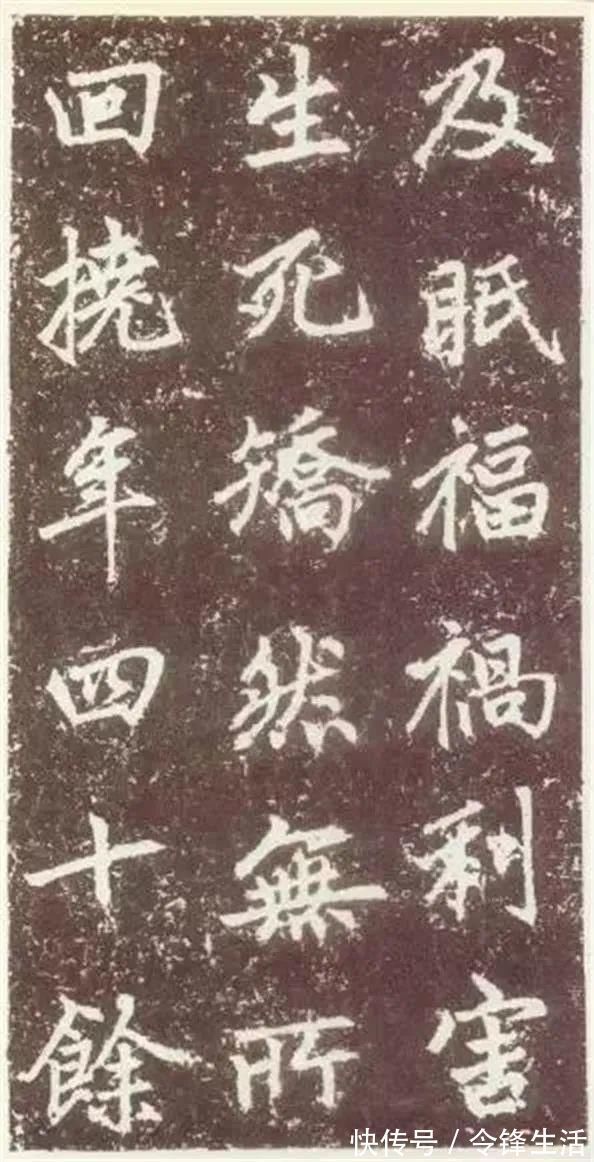 及眂福禍利害
生死矯然無所
回撓年四十餘
快传号 / 令锋生活